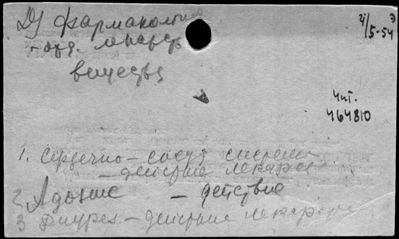 ДУ фармакологи
- отд. лекарств.
веществ
4/5-54 э
Чит.
464810
1. Сердечно - сосуд система
- действие лекарств
2 Адонис - действие
3 Диурез - действие лекарств